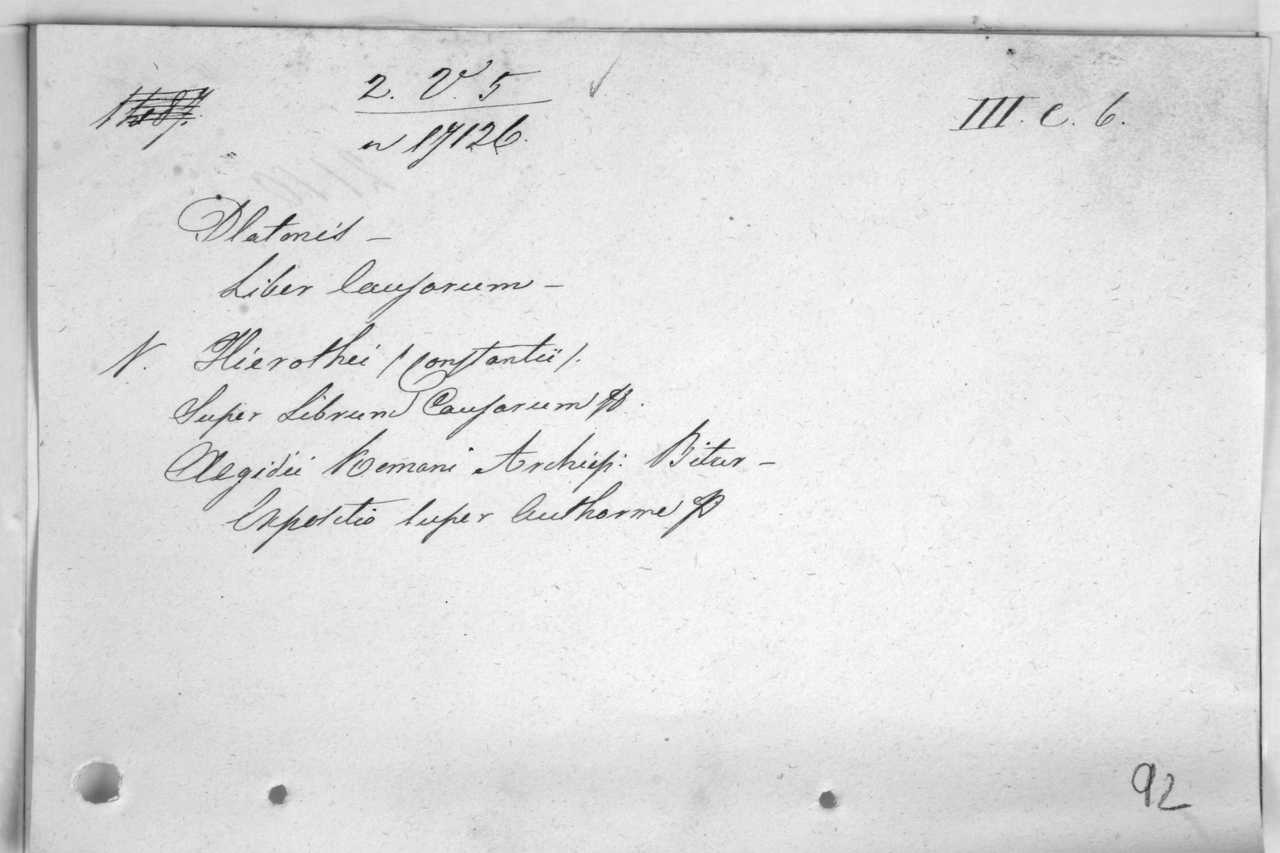 2. V. 5
III. c. 6.
n 17126.
Platonis –
Liber Causarum –
N. Hierothei / Constantii /.
Super Librum Causarum
Aegidii Romani Archiep: Bitur –
Expositio super Authorme
92